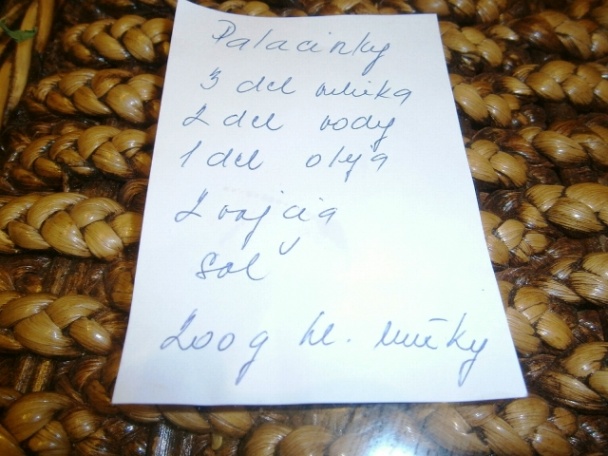 Palacinky
3 del mlieka
2 del vody
1 del olja
2 vajcia
soľ
200g hl. múky